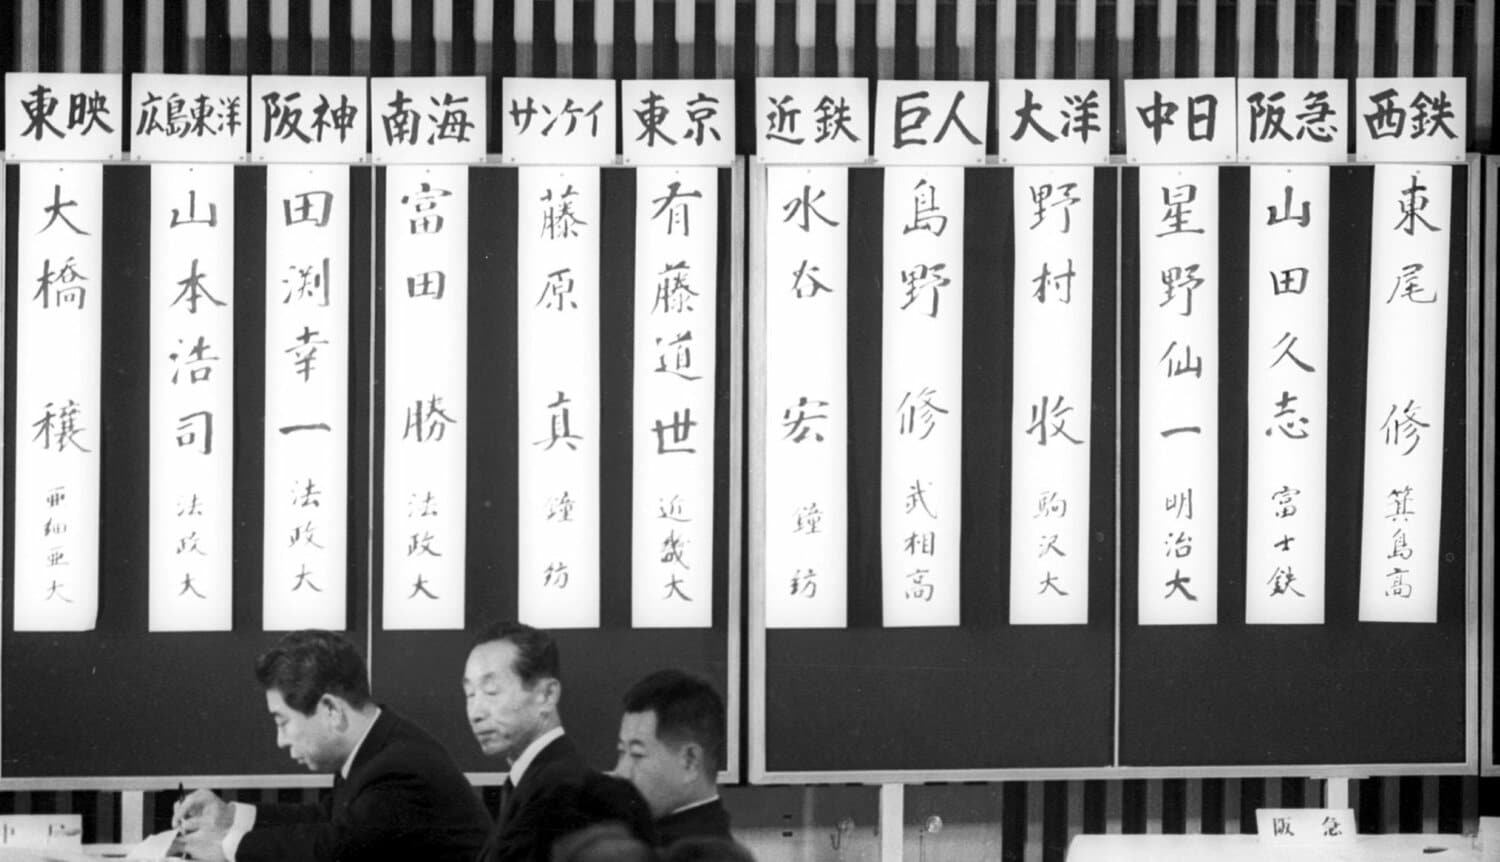 東映
大橋 穣 亜細亜大
広島東洋
山本浩司 法政大
阪神
田渕幸一 法政大
南海
富田 勝 法政大
サンケイ
藤原 真 鐘紡
東京
有藤道世 近畿大
近鉄
水谷 宏 鐘紡
巨人
島野 修 武相高
大洋
野村 收 駒沢大
中日
星野仙一 明治大
阪急
山田久志 富士鉄
西鉄
東尾 修 箕島高
阪急